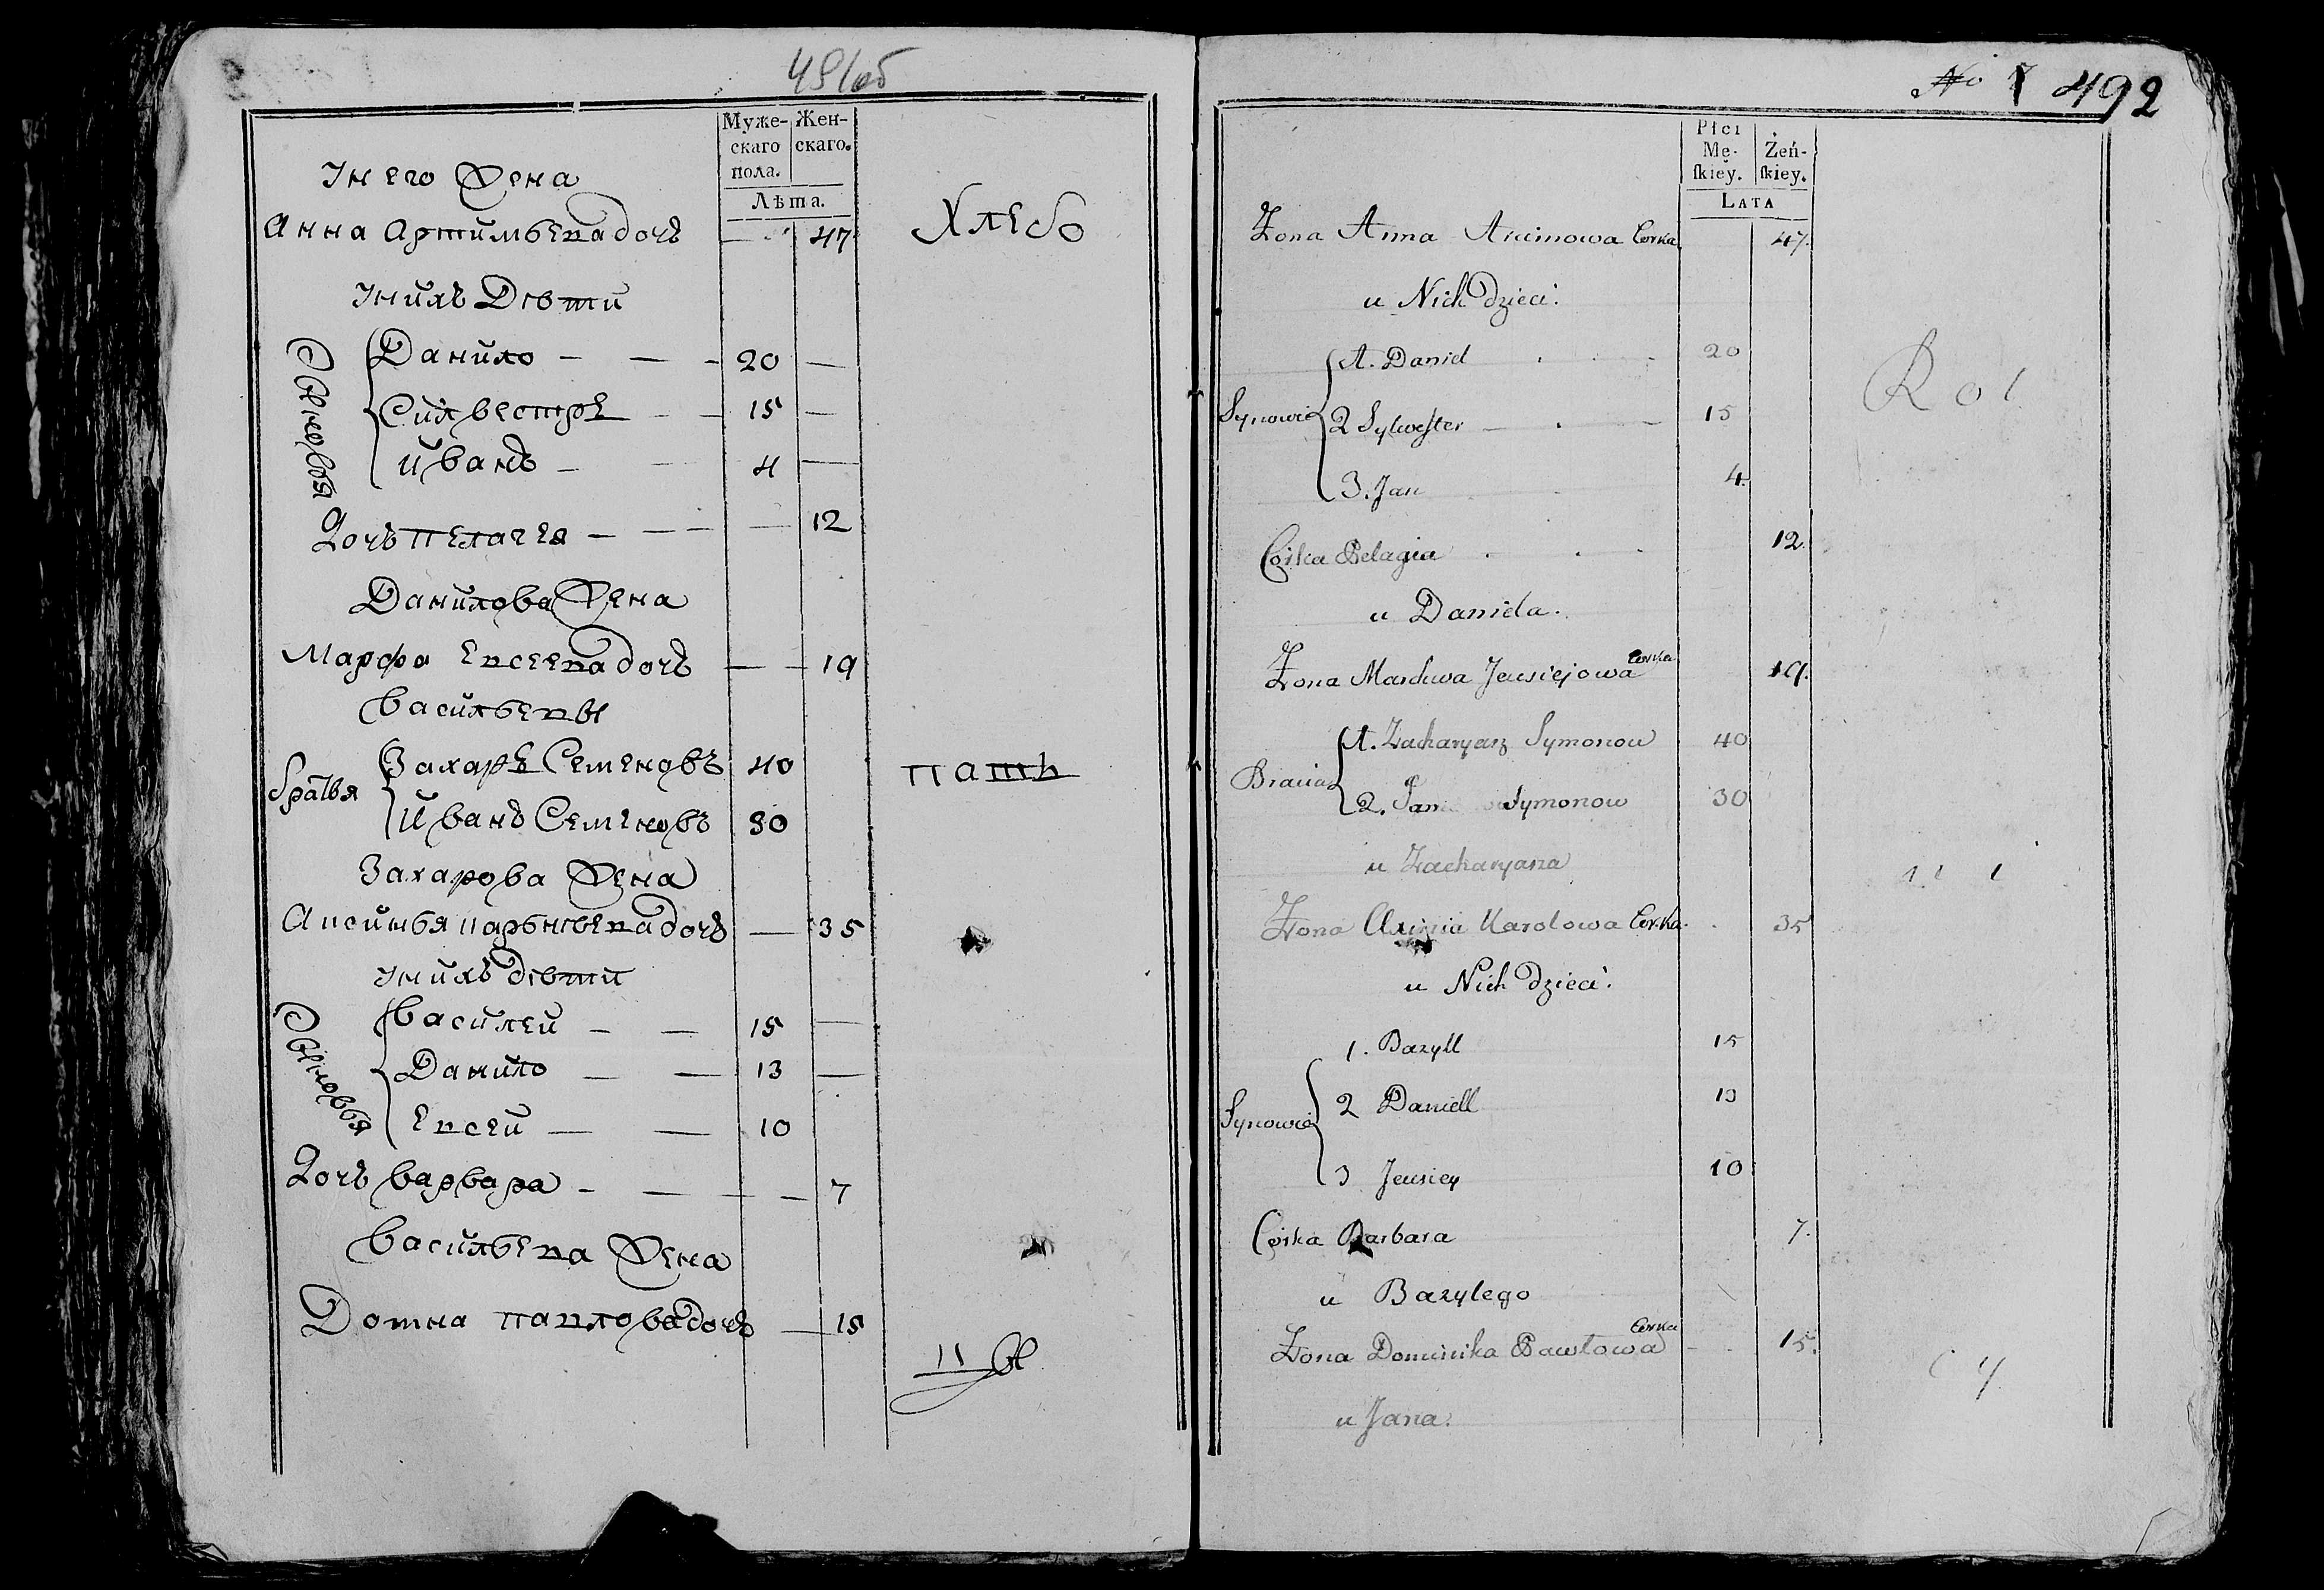 491об
Муже-скаго пола. Жен-скаго.
Лѣта.
Унего Жена
Анна Артимьева дочь — 47 Хлебо
Унихъ Дѣти
Сыновья
Данило — — — 20 —
Силвестръ — — 15 —
Иванъ — — 4 —
Дочь пелагея — — — — 12
Данилова Жена
Марфа Евсеева дочь — — 19
васильевы
братья
Захаръ Семеновъ 40 паш
Иванъ Семеновъ 30
Захарова Жена
Аксинья парѳньева дочь — 35
Унихъ дѣти
Сыновья
василеи — — 15 —
Данило — — 13 —
Евсеи — — 10
Дочь варвара — — — — 7
васильева Жена
Домна павлова дочь — 15
№ 7 492
Płci Mę-ſkiey. Żeń-ſkiey.
LATA
Żona Anna Arcimowa Corka 47.
u Nich dzieci:
Synowie
1. Daniel 20
2 Sylweſter — 15
3. Jan 4.
Corka Pelagia 12.
u Daniela.
Żona Marchwa Jeusiejowa Corka 19.
Bracia
1. Zacharyasz Symonow 40
2. Jan Symonow 30
u Zacharyasza
Żona Axinia Karolowa Corka. 35
u Nich dzieci:
Synowie
1. Bazyll 15
2 Daniell 13
3 Jeusiey 10
Corka Barbara 7.
u Bazylego
Żona Dominika Pawłowa Corka 15.
u Jana.